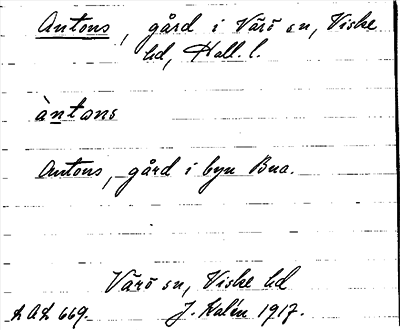 Antons, gård i Värö sn, Viske
hd, Hall. l.
àntons
Antons, gård i byn Bua.
Värö sn, Viske hd
LAL 669. J. Kalén 1917.